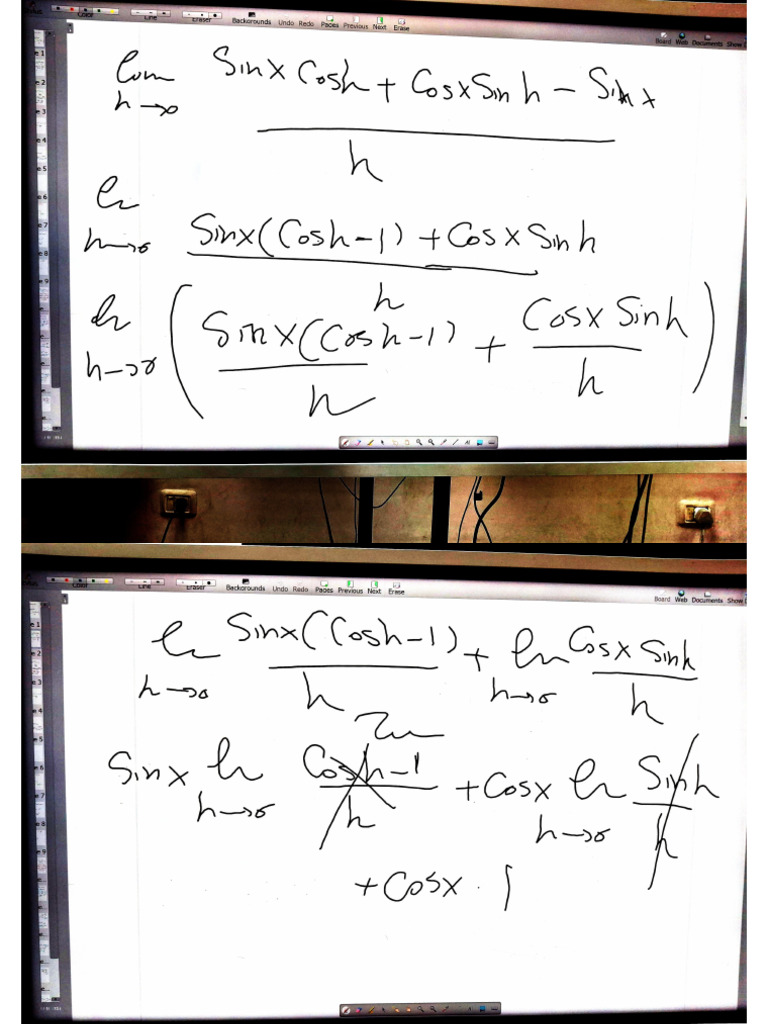 Color Line Eraser Backgrounds Undo Redo Pages Previous Next Erase
Board Web Documents Show
lim Sinx Cosh + Cosx Sinh - Sinx
h→0
h
Sinx(Cosh-1) + Cosx Sinh
h→0
h
Sinx(Cosh-1) + Cosx Sinh
h→0
h h
Color Line Eraser Backgrounds Undo Redo Pages Previous Next Erase
Board Web Documents Show
Sinx(Cosh-1) + Cosx Sinh
h→0 h→0
h h
Sinx Cosh-1 + Cosx Sinh
h→0 h→0
h h
+ Cosx . 1